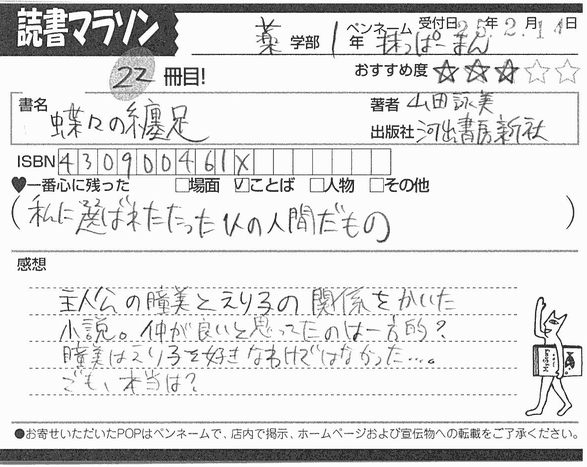 読書マラソン
薬 学部 1年 ペンネーム 抹っぱーまん 受付日 25年2月14日
22 冊目!
おすすめ度 ★★★☆☆
書名 蝶々の纏足
著者 山田詠美
出版社 河出書房新社
ISBN 430900461X
♥一番心に残った □場面 ☑ことば □人物 □その他
(私に選ばれたたった1人の人間だもの)
感想
主人公の瞳美とえり子の関係をかいた
小説。仲が良いと思ってたのは一方的?
瞳美はえり子を好きなわけではなかった…。
でも、本当は?
●お寄せいただいたPOPはペンネームで、店内で掲示、ホームページおよび宣伝物への転載をご了承ください。